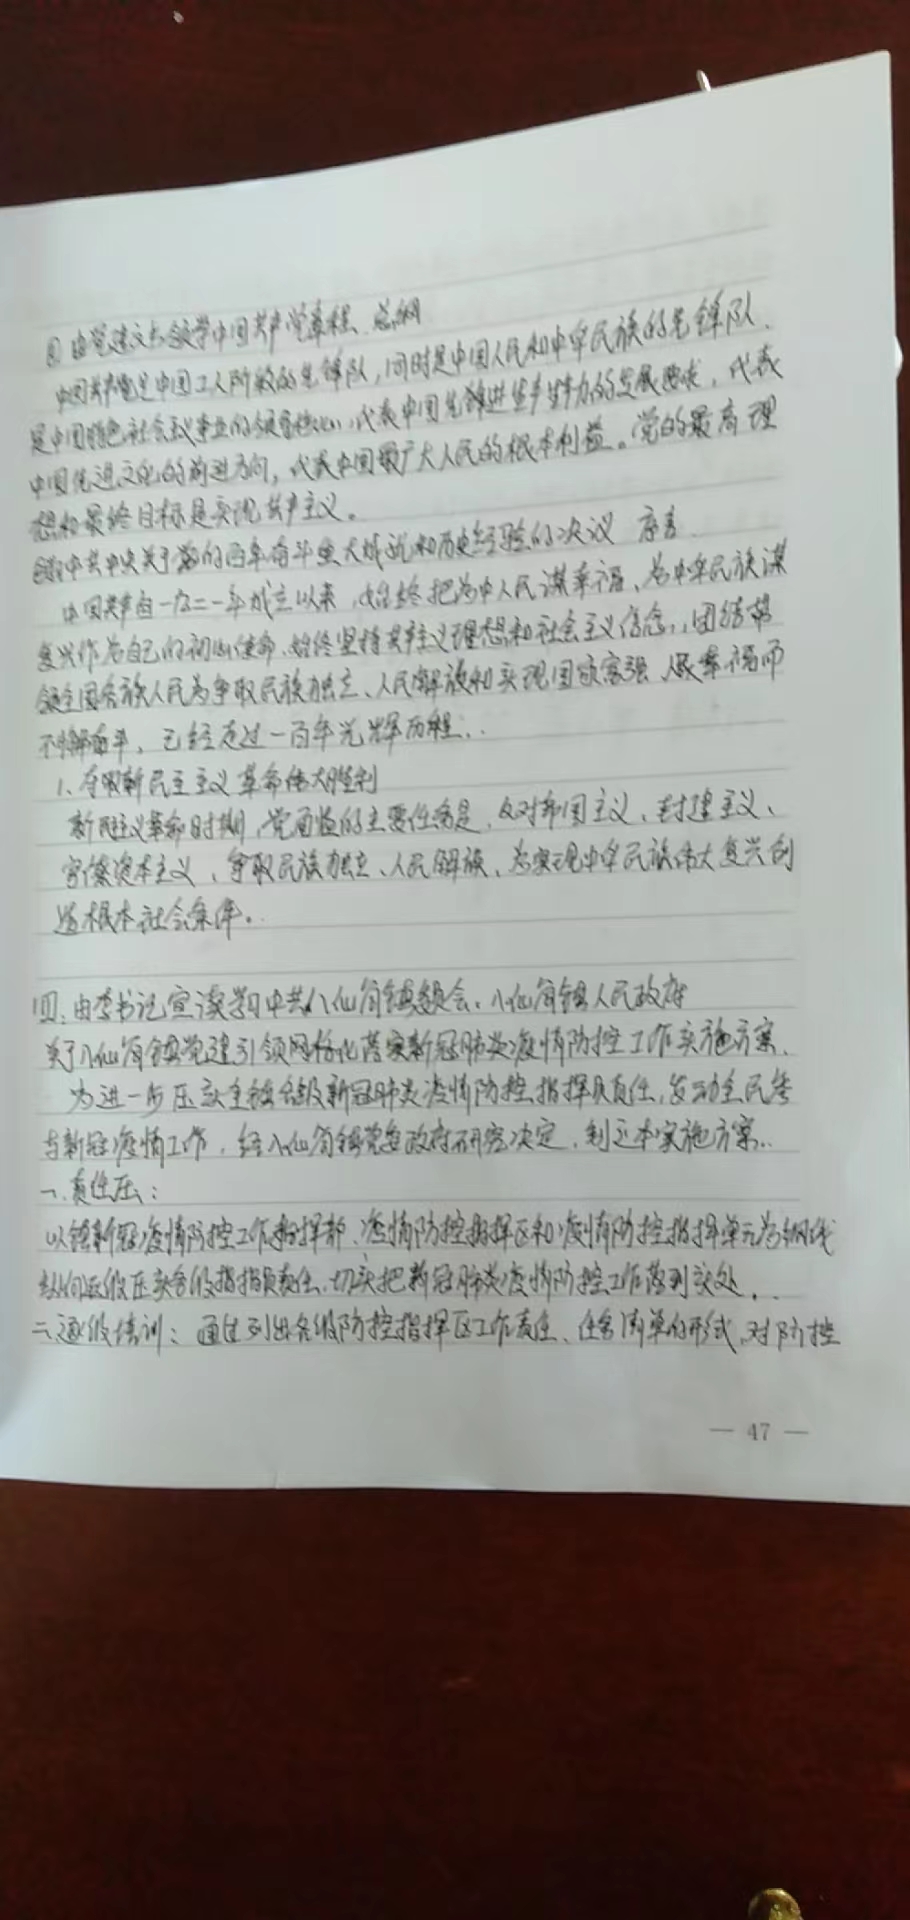 由党建文书领学中国共产党章程、总纲
中国共产党是中国工人阶级的先锋队，同时是中国人民和中华民族的先锋队、
是中国特色社会主义事业的领导核心，代表中国先进生产力的发展要求，代表
中国先进文化的前进方向，代表中国最广大人民的根本利益。党的最高理
想和最终目标是实现共产主义。
中共中央关于党的百年奋斗重大成就和历史经验的决议 序言
中国共产自一九二一年成立以来，始终把为中人民谋幸福、为中华民族谋
复兴作为自己的初心使命，始终坚持共产主义理想和社会主义信念，团结带
领全国各族人民为争取民族独立、人民解放和实现国家富强、人民幸福而
不懈奋斗，已经走过一百年光辉历程：
1、夺取新民主主义革命伟大胜利
新民主义革命时期，党面临的主要任务是，反对帝国主义、封建主义、
官僚资本主义，争取民族独立、人民解放，为实现中华民族伟大复兴创
造根本社会条件。
四、由李书记宣读学习中共八仙筒镇委员会、八仙筒镇人民政府
关于八仙筒镇党建引领网格化落实新冠肺炎疫情防控工作实施方案、
为进一步压实全镇各级新冠肺炎疫情防控指挥员责任，发动全民参
与新冠疫情工作，经八仙筒镇党委政府研究决定，制定本实施方案..
一、责任压：
以镇新冠疫情防控工作指挥部、疫情防控指挥区和疫情防控指挥单元为纲线
纵向逐级压实各级指挥员责任，切实把新冠肺炎疫情防控工作落到实处，..
二、逐级培训：通过列出各级防控指挥区工作责任、任务清单的形式，对防控
— 47 —